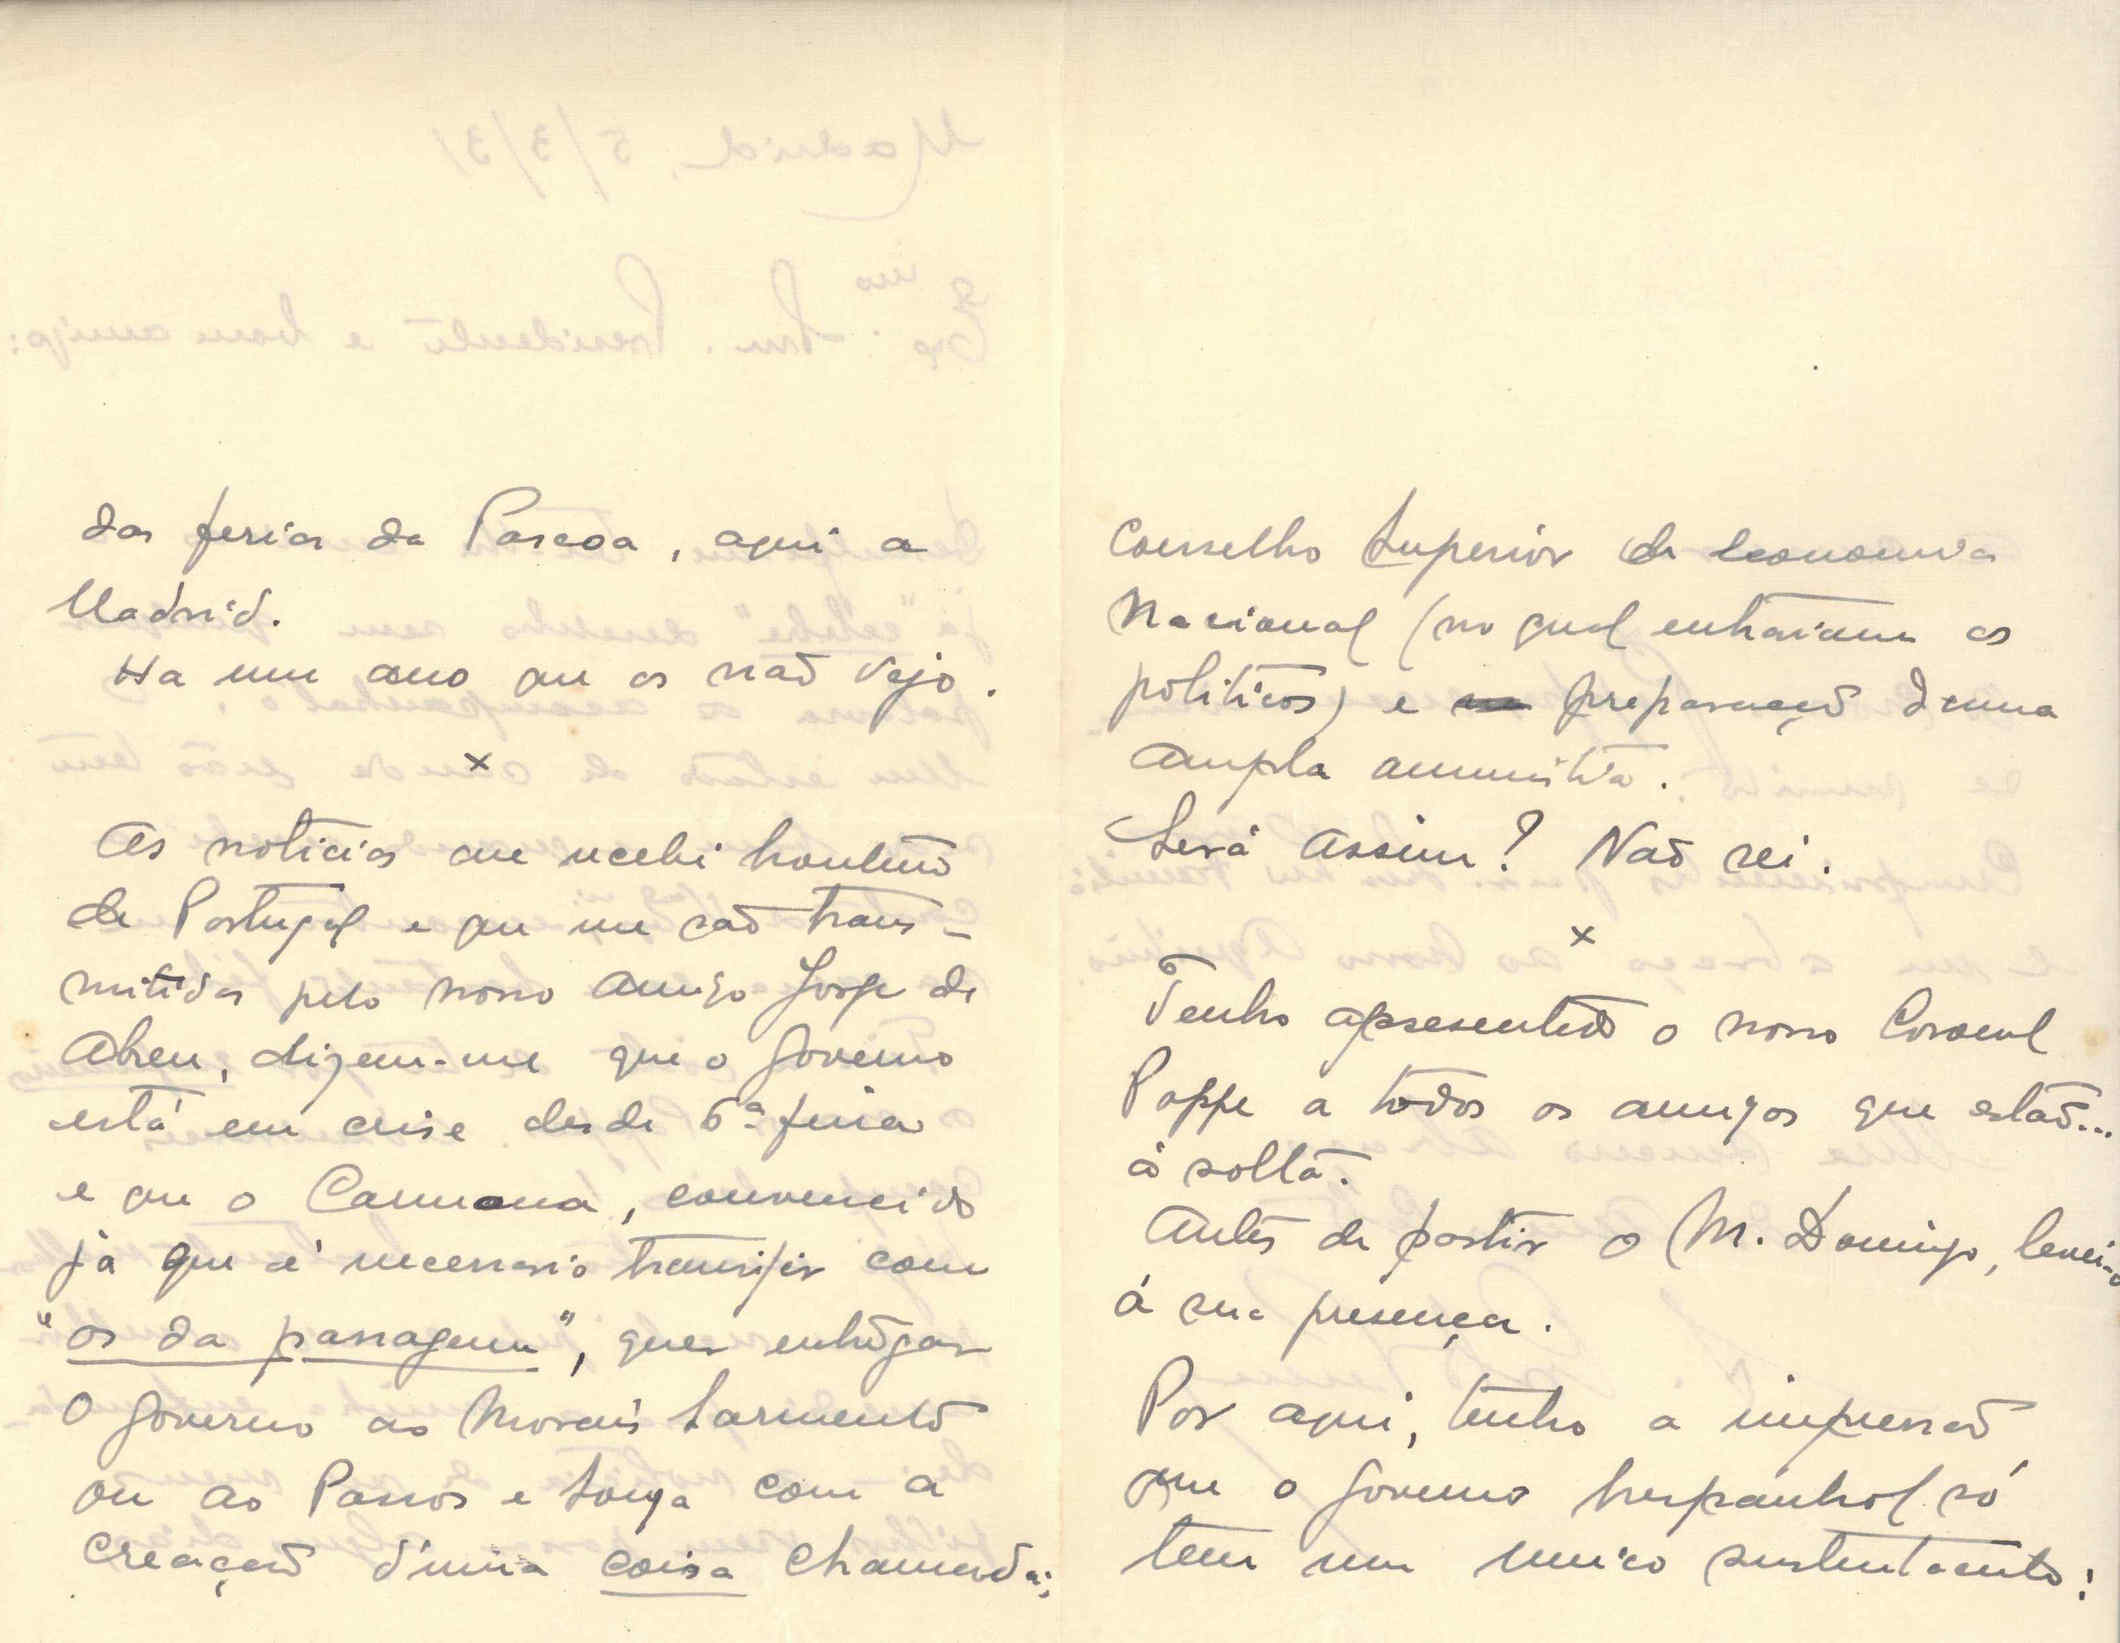 das ferias da Pascoa, aqui a
Madrid.
Ha um ano que os não vejo.
x
As noticias que recebi hontem
de Portugal e que me são trans-
mitidas pelo nosso amigo Jorge de
Abreu, dizem-me que o Governo
está em crise desde 6ª feira
e que o Carmona, convencido
já que é necessario transigir com
"os da passagem", quer entregar
o Governo ao Morais Sarmento
ou ao Passos e Sousa com a
creação d'uma coisa chamada:
Conselho Superior da Economia
Nacional (no qual entrariam os
politicos) e preparação duma
ampla amnistia.
Será assim? Não sei.
x
Tenho apresentado o nosso Coronel
Poppe a todos os amigos que estão...
á solta.
Antes de partir o M. Domingo, levei-o
á sua presença.
Por aqui, tenho a impressão
que o Governo hespanhol só
tem um unico sustentaculo:
Madrid, 5/3/31
Exmo Snr. Presidente e bom amigo: